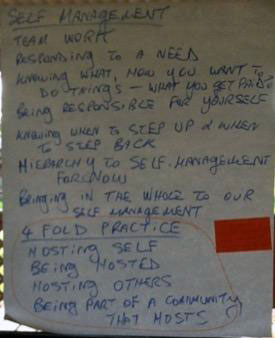 SELF MANAGEMENT
TEAM WORK
RESPONDING TO A NEED
KNOWING WHAT, HOW YOU WANT TO
DO THINGS - WHAT YOU GET PAID?
BEING RESPONSIBLE FOR YOURSELF
KNOWING WHEN TO STEP UP & WHEN
TO STEP BACK
HIERARCHY TO SELF-MANAGEMENT
FOR NOW
BRINGING IN THE WHOLE TO OUR
SELF MANAGEMENT
4 FOLD PRACTICE
HOSTING SELF
BEING HOSTED
HOSTING OTHERS
BEING PART OF A COMMUNITY
THAT HOSTS